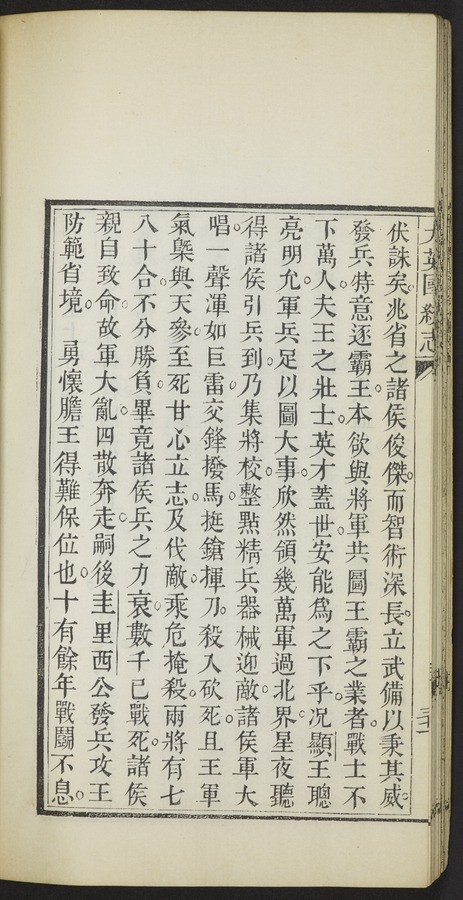 大英國統志
伏誅矣。兆省之諸侯俊傑。而智術深長。立武備以秉其威。
發兵。特意逐霸王。本欲與將軍共圖王霸之業者。戰士不
下萬人。夫王之壯士。英才蓋世。安能爲之下乎。况顯王聰
亮明允。軍兵足以圖大事。欣然領幾萬軍過北界。星夜聽
得諸侯引兵到。乃集將校。整點精兵器械迎敵。諸侯軍大
唱一聲渾如巨雷。交鋒撥馬。挺鎗揮刀。殺入砍死。且王軍
氣槩與天參。至死甘心立志。及代敵乘危掩殺。兩將有七
八十合。不分勝負。畢竟諸侯兵之力衰。數千已戰死。諸侯
親自致命。故軍大亂。四散奔走。嗣後圭里西公發兵攻王
防範省境。 勇懷膽王得難保位也。十有餘年戰鬭不息。